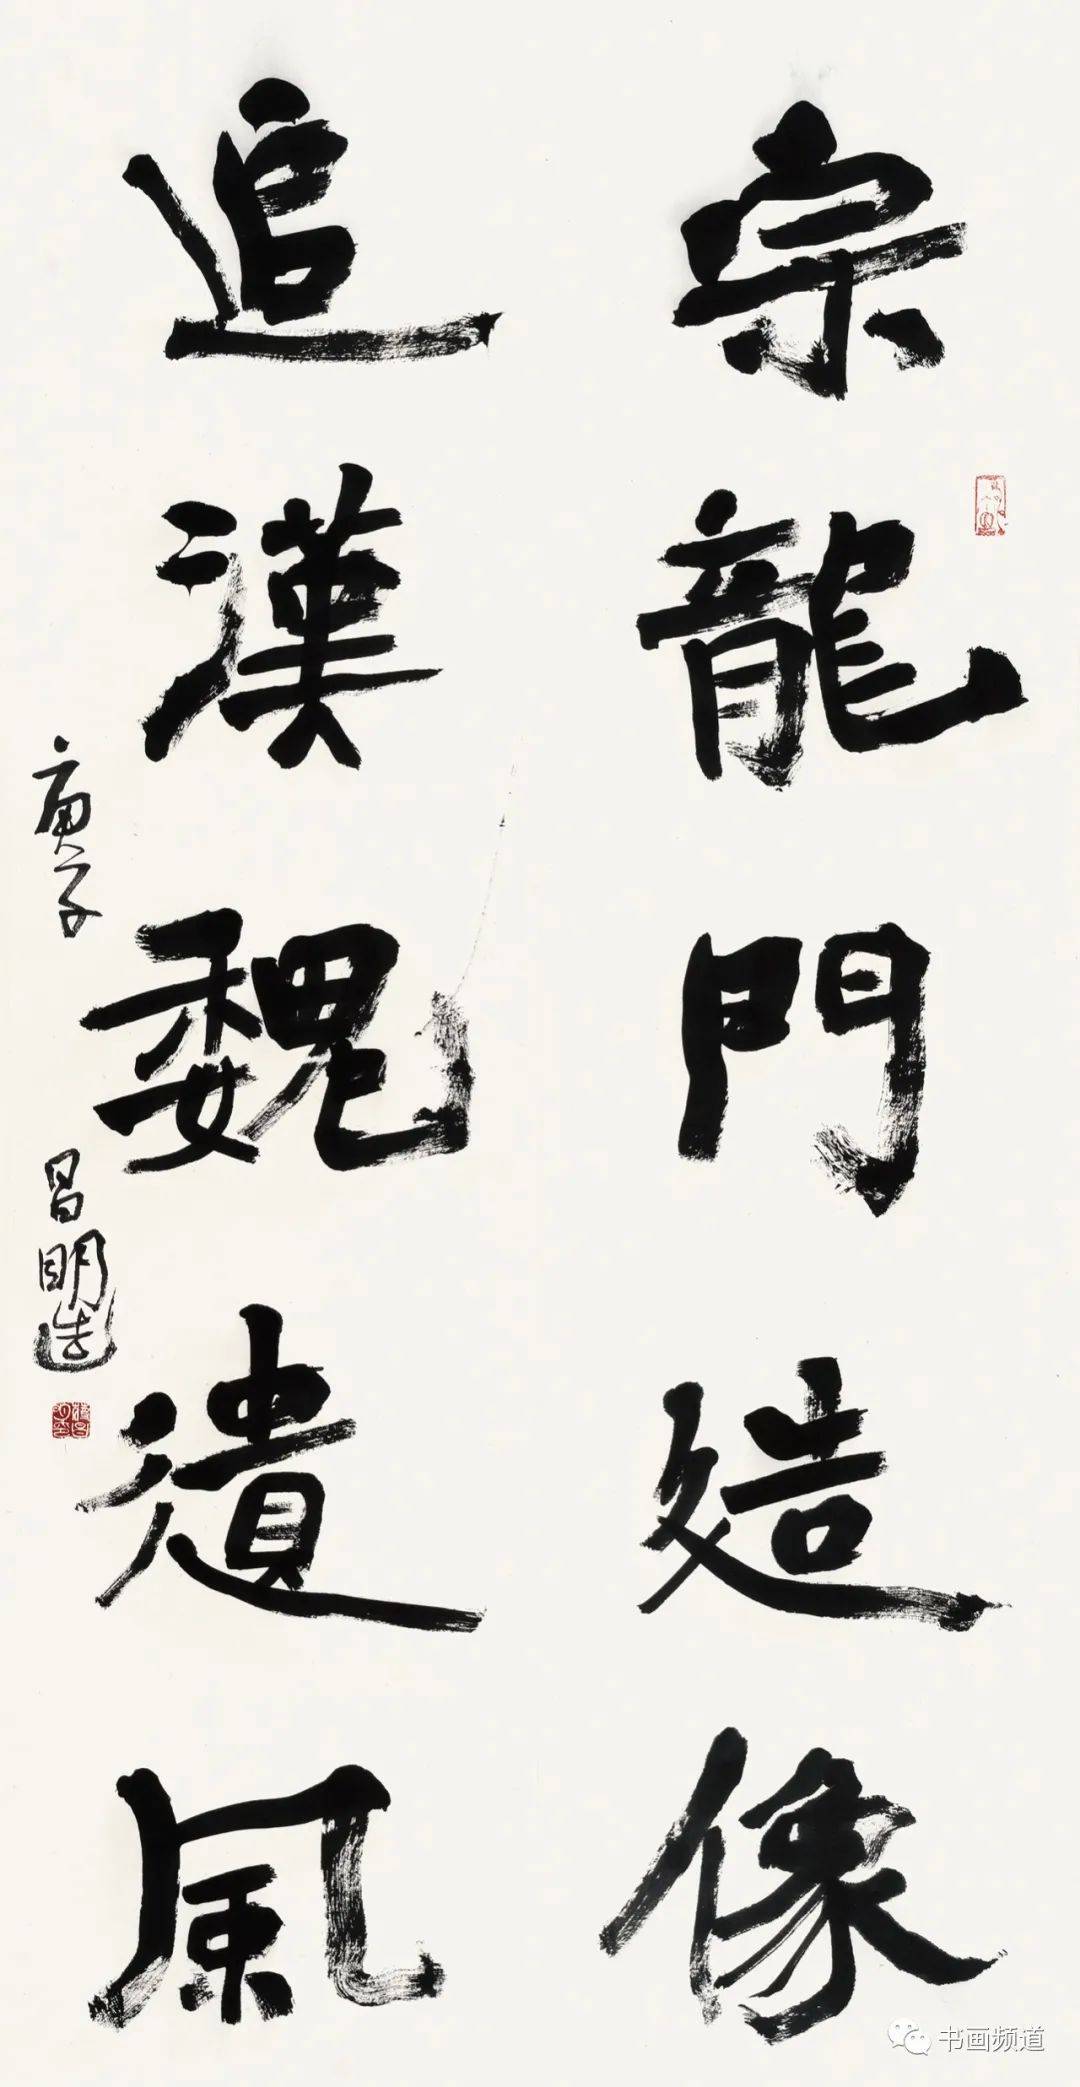 宗龍門造像
追漢魏遺風
庚子
昌明造
书画频道